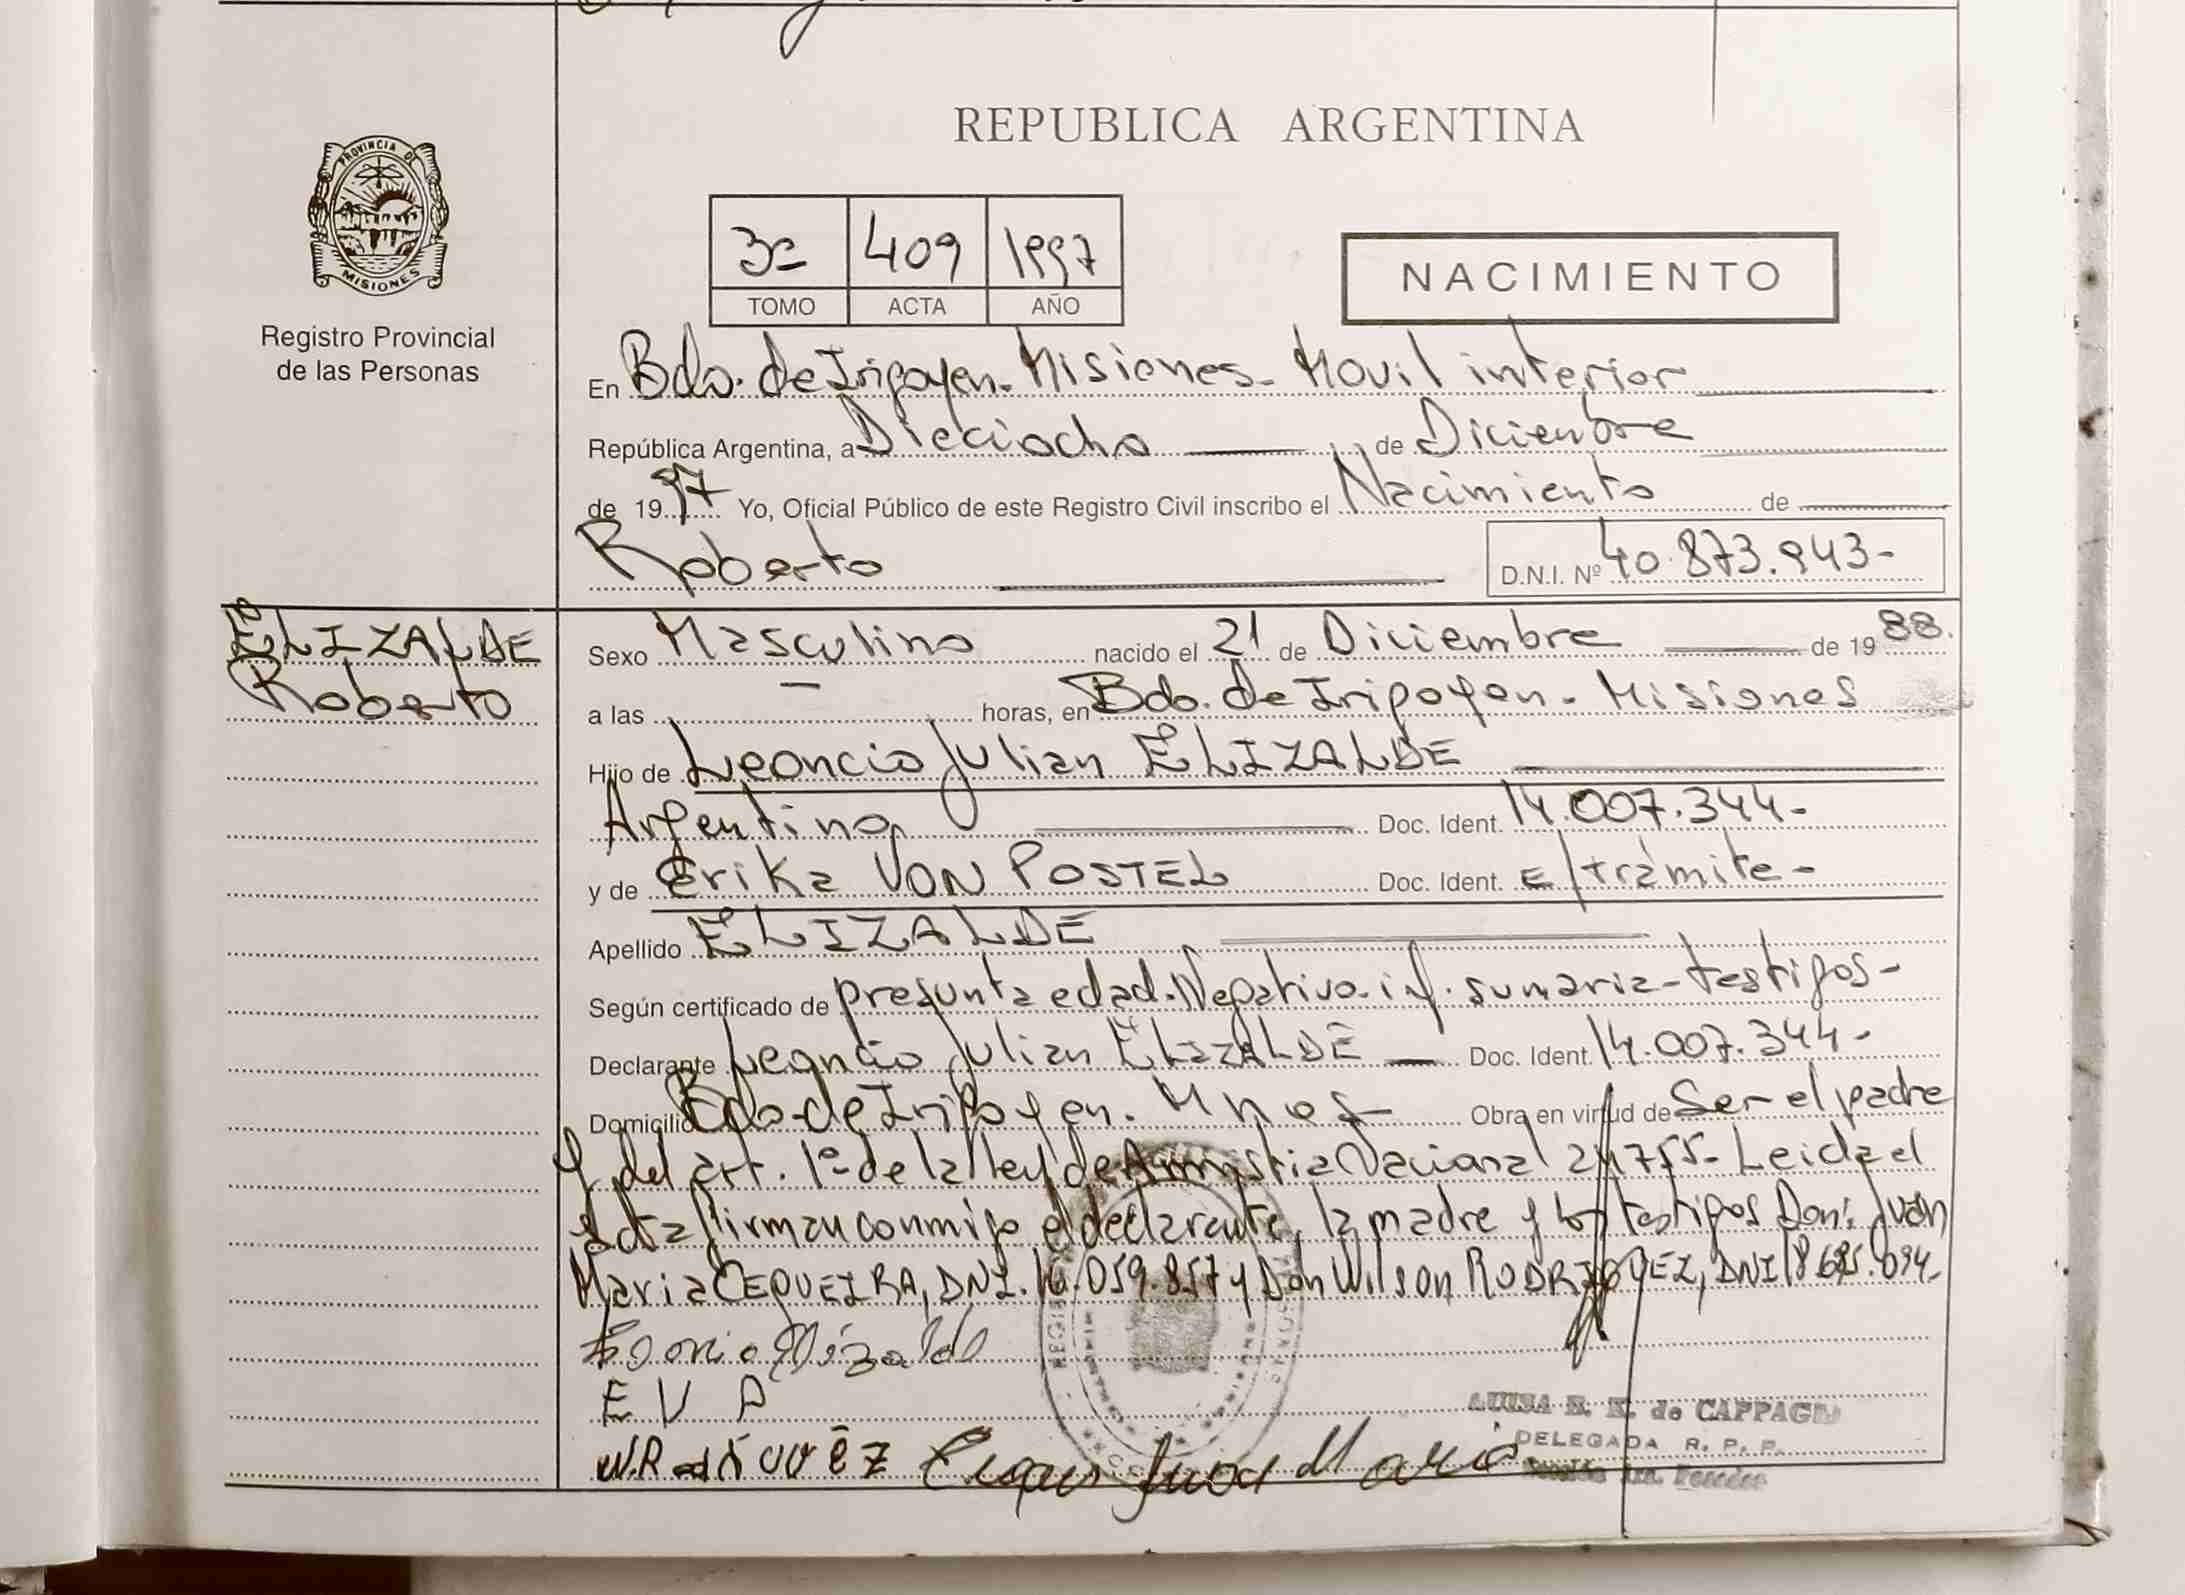 REPUBLICA ARGENTINA
PROVINCIA DE
MISIONES
Registro Provincial
de las Personas
3º 409 1997
TOMO ACTA AÑO
NACIMIENTO
En Bdo. de Irigoyen. Misiones. Movil interior
República Argentina, a Dieciocho de Diciembre
de 1997 Yo, Oficial Público de este Registro Civil inscribo el Nacimiento de
Roberto D.N.I. Nº 40.873.943-
ELIZALDE
Roberto
Sexo Masculino nacido el 21 de Diciembre de 1988.
a las - horas, en Bdo. de Irigoyen - Misiones
Hijo de Leoncio Julian ELIZALDE
Argentino Doc. Ident. 14.007.344-
y de Erika VON POSTEL Doc. Ident. E/trámite-
Apellido ELIZALDE
Según certificado de presunta edad. Negativo. inf. sumaria - testigos -
Declarante Leoncio Julian ELIZALDE Doc. Ident. 14.007.344-
Domicilio Bdo. de Irigoyen. Mnes Obra en virtud de Ser el padre
y del art. 1º de la ley de Amnistia Nacional 24755- Leida el
Acta firman conmigo el declarante, la madre y los testigos Don: Juan
Maria CEQUEIRA, DNI. 16.059.857 y Don Wilson RODRIGUEZ, DNI 18.685.094-
Elizalde
E V P
W. Juan Maria
de CAPPAGLI
DELEGADA R. P. P.